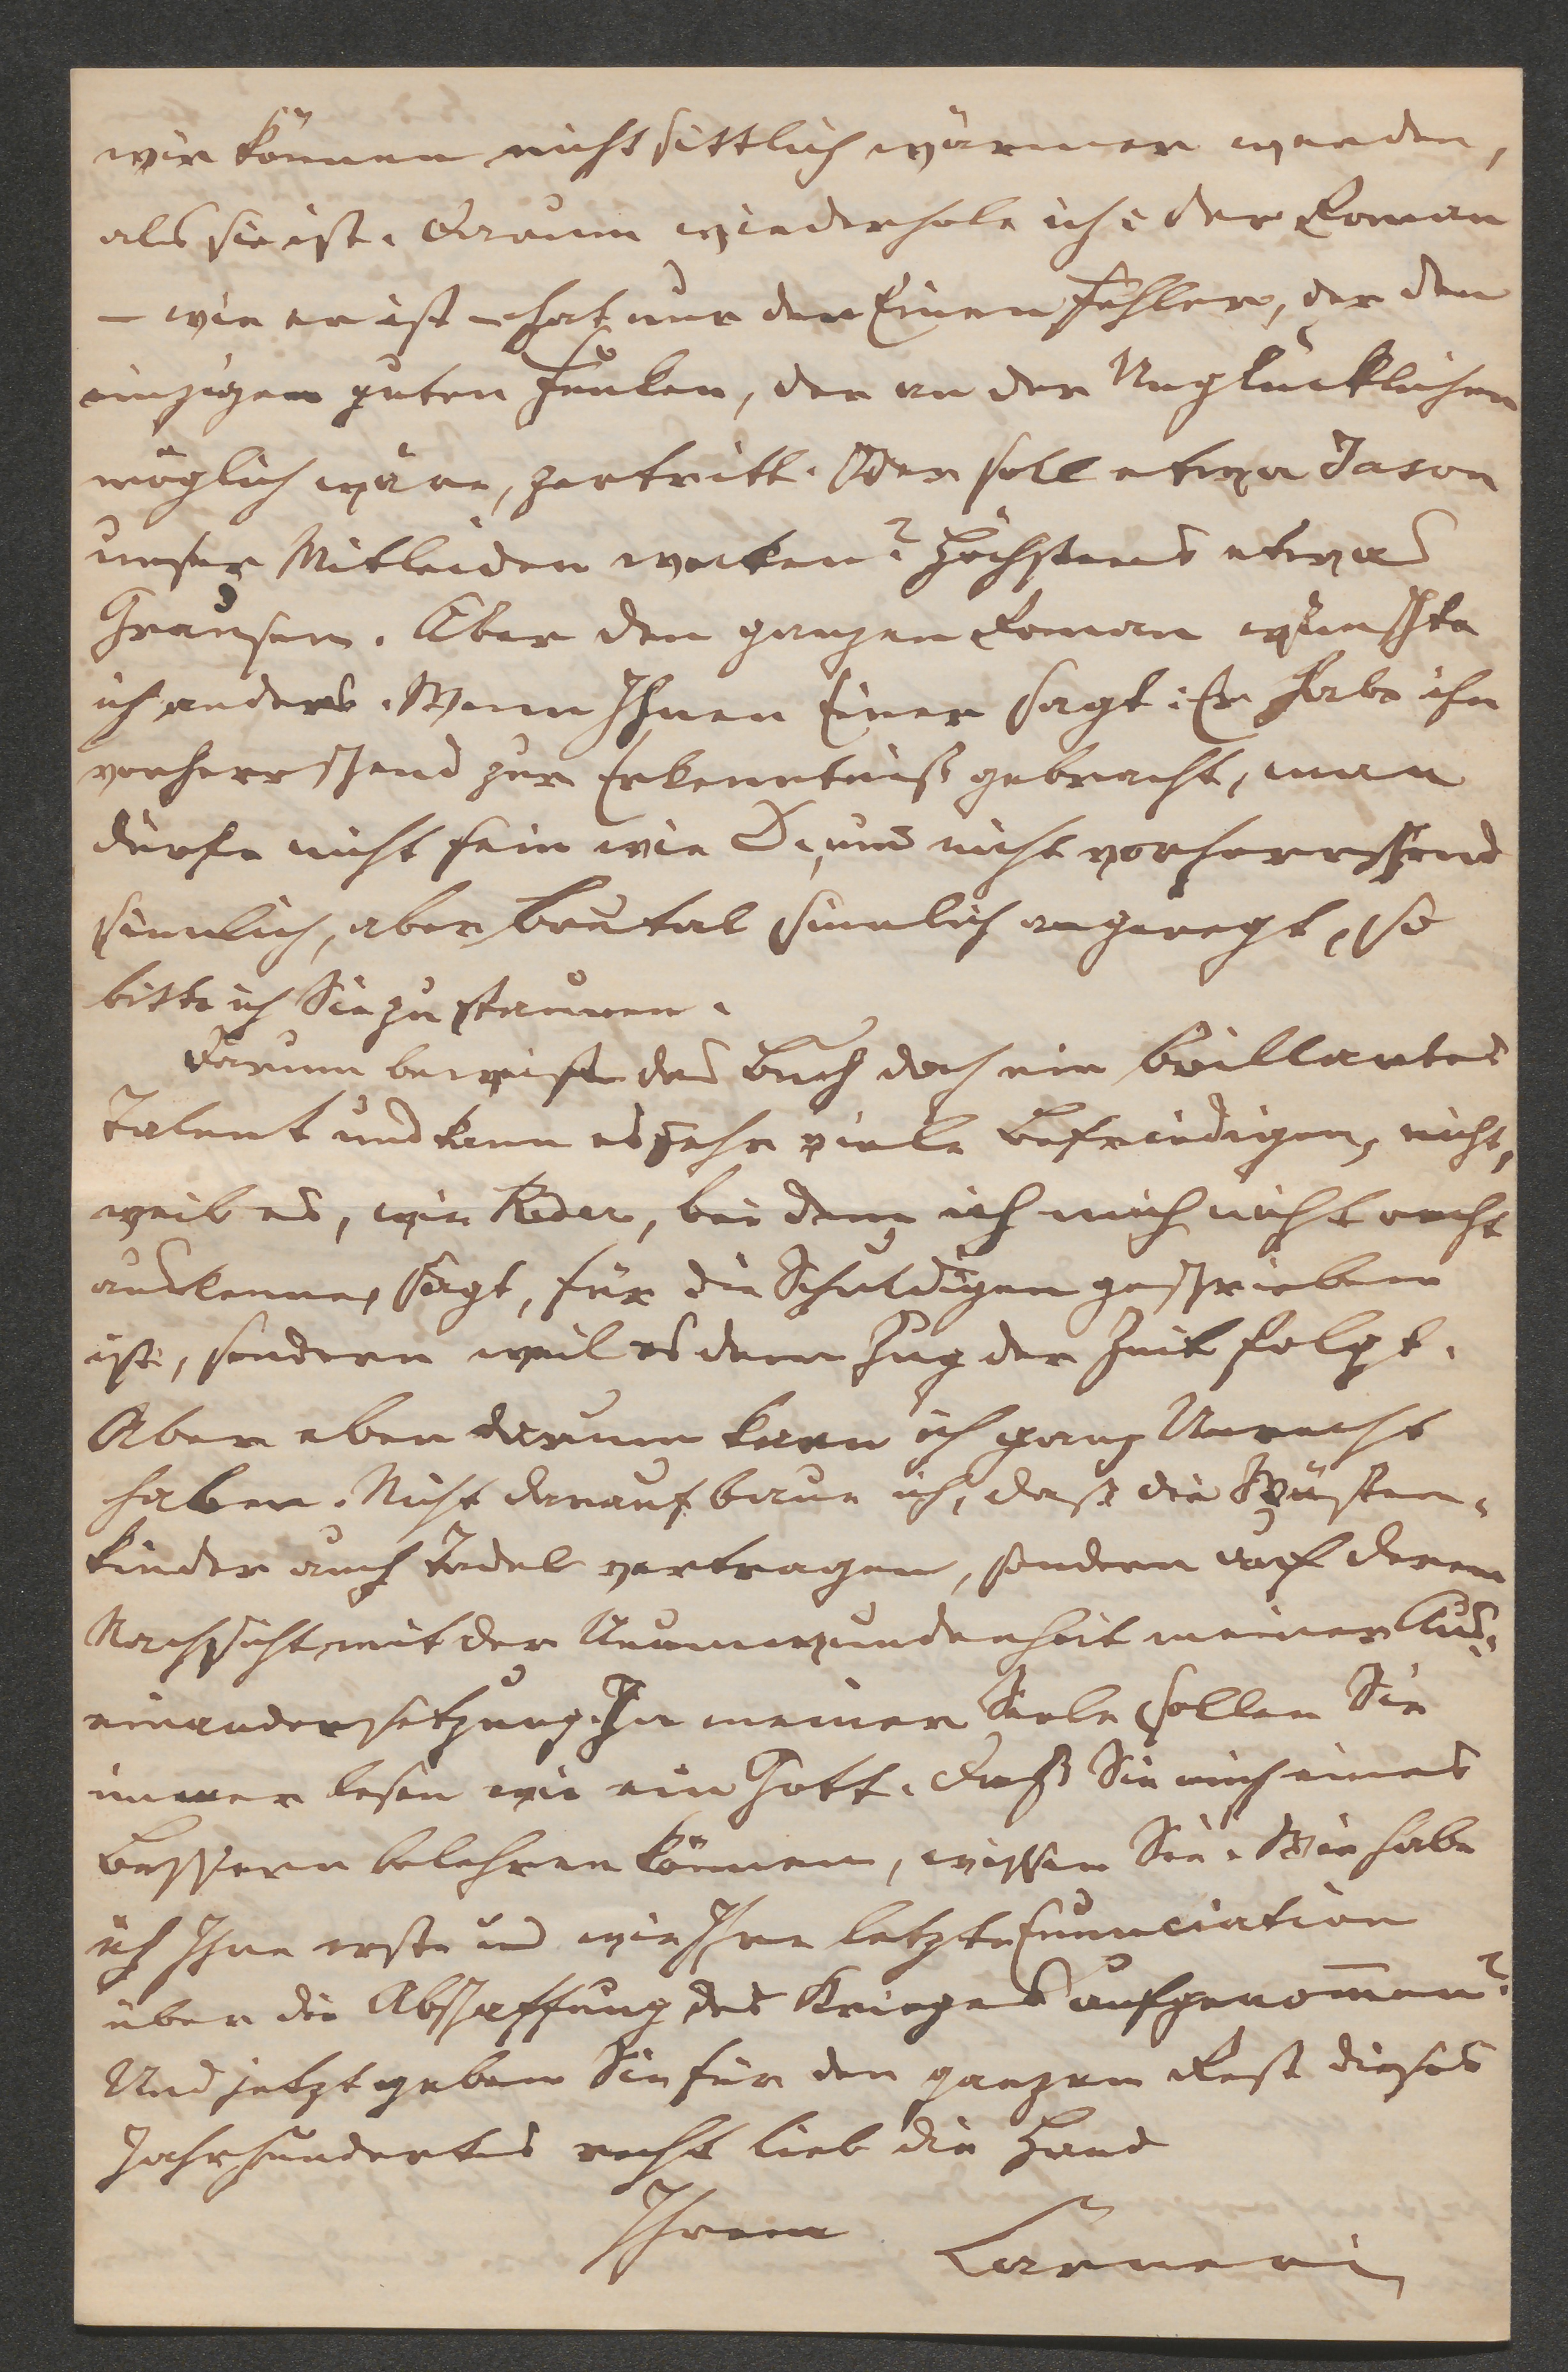 wir können nicht sittlich wärmer werden,
als sie ist. Darum wiederhole ich: der Roman
— wie er ist — hat nur den Einen Fehler, der den
einzigen guten Funken, der an der Unglücklichen
möglich wäre, zertritt. Oder soll etwa Jason
unser Mitleiden wecken? Höchstens etwas
Grausen. Aber den ganzen Roman wünschte
ich anders. Wenn Ihnen Einer sagt: Er habe ihn
vorherrschend zur Erkenntniß gebracht, man
dürfe nicht sein wie D., und nicht vorherrschend
sinnlich, aber brutal sinnlich angeregt, so
bitte ich Sie zu staunen.
Darum beweist das Buch doch ein brillantes
Talent und kann es sehr viele befriedigen, nicht,
weil es, wie Roder, bei dem ich mich nicht recht
auskenne, sagt, für die Schuldigen geschrieben
ist, sondern weil es dem Zug der Zeit folgt.
Aber eben darum kann ich ganz Unrecht
haben. Nicht darauf baue ich, daß die Wüsten-
kinder auch Tadel vertragen, sondern auf deren
Nachsicht mit der Unumwundenheit meiner Aus-
einandersetzung. In meiner Seele sollen Sie
immer lesen wie ein Gott. Daß Sie mich eines
Bessern belehren können, wissen Sie. Wie habe
ich Ihre erste und wie Ihre letzte Enunciation
über die Abschaffung des Krieges aufgenommen?
Und jetzt geben Sie für den ganzen Rest dieses
Jahrhundertes recht lieb die Hand
Ihrem
Carneri